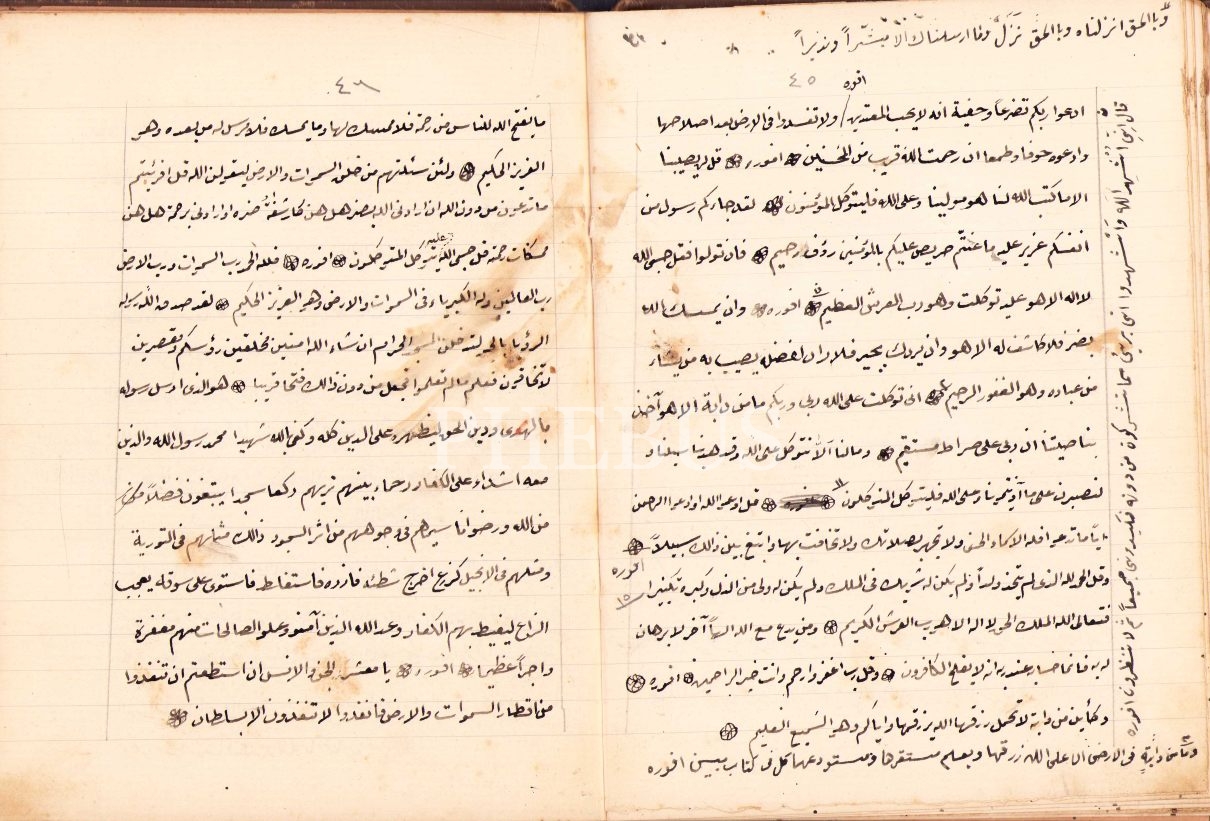 وبالحق انزلناه وبالحق نزل وما ارسلناك الا مبشراً ونذيراً
٤٥
اقوره
ادعوا ربكم تضرعاً وخفية انه لا يحب المعتدين ولا تفسدوا فى الارض بعد اصلاحها
وادعوه خوفا وطمعا ان رحمت الله قريب من المحسنين اقوره قل لن يصيبنا
الا ما كتب الله لنا هو مولينا وعلى الله فليتوكل المؤمنون لقد جاءكم رسول من
انفسكم عزيز عليه ما عنتم حريص عليكم بالمؤمنين رؤف رحيم فان تولوا فقل حسبى الله
لا اله الا هو عليه توكلت وهو رب العرش العظيم اقوره وان يمسسك الله
بضر فلا كاشف له الا هو وان يردك بخير فلا راد لفضله يصيب به من يشاء
من عباده وهو الغفور الرحيم انى توكلت على الله ربى وربكم ما من دابة الا هو آخذ
بناصيتها ان ربى على صراط مستقيم وما لنا الا نتوكل على الله وقد هدينا سبلنا و
لنصبرن على ما آذيتمونا وعلى الله فليتوكل المتوكلون قل ادعوا الله او ادعوا الرحمن
اياً ما تدعوا فله الاسماء الحسنى ولا تجهر بصلاتك ولا تخافت بها وابتغ بين ذالك سبيلاً
اقوره
وقل الحمد لله الذى لم يتخذ ولداً ولم يكن له شريك فى الملك ولم يكن له ولى من الذل وكبره تكبيرا
١٥
فتعالى الله الملك الحق لا اله الا هو رب العرش الكريم ومن يدع مع الله الهاً آخر لا برهان
له به فانما حسابه عند ربه انه لا يفلح الكافرون وقل رب اغفر وارحم وانت خير الراحمين اقوره
وكأين من دابة لا تحمل رزقها الله يرزقها واياكم وهو السميع العليم
وما من دابة فى الارض الا على الله رزقها ويعلم مستقرها ومستودعها كل فى كتاب مبين اقوره
قال انى اشهد الله واشهدوا انى برىء مما تشركون من دونه فكيدونى جميعاً ثم لا تنظرون اقوره
٤٦
ما يفتح الله للناس من رحمة فلا ممسك لها وما يمسك فلا مرسل له من بعده وهو
العزيز الحكيم ولئن سئلتهم من خلق السموات والارض ليقولن الله قل افرئيتم
ما تدعون من دون الله ان ارادنى الله بضر هل هن كاشفة ضره او ارادنى برحمة هل هن
ممسكات رحمته قل حسبى الله عليه يتوكل المتوكلون اقوره فلله الحمد رب السموات ورب الارض
رب العالمين وله الكبرياء فى السموات والارض وهو العزيز الحكيم لقد صدق الله رسوله
الرؤيا بالحق لتدخلن المسجد الحرام ان شاء الله امنين محلقين رؤسكم ومقصرين
لا تخافون فعلم ما لم تعلموا فجعل من دون ذالك فتحا قريبا هو الذى ارسل رسوله
بالهدى ودين الحق ليظهره على الدين كله وكفى بالله شهيدا محمد رسول الله والذين
معه اشداء على الكفار رحماء بينهم تريهم ركعا سجدا يبتغون فضلاً
من الله ورضوانا سيماهم فى وجوههم من اثر السجود ذالك مثلهم فى التورية
ومثلهم فى الانجيل كزرع اخرج شطئه فازره فاستغلظ فاستوى على سوقه يعجب
الزراع ليغيظ بهم الكفار وعد الله الذين آمنو وعملو الصالحات منهم مغفرة
واجراً عظيما اقوره يا معشر الجن والانس ان استطعتم ان تنفذوا
من اقطار السموات والارض فانفذوا لا تنفذون الا بسلطان
PHEBUS